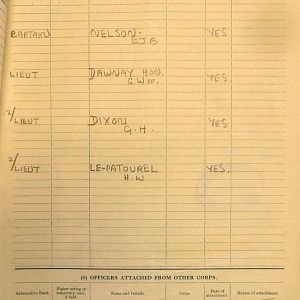 CAPTAIN NELSON. YES
E.J.B
LIEUT DAWNAY HON. YES
G. WM.
2/LIEUT. DIXON YES
G.H.
2/LIEUT LE-PATOUREL YES.
H.W
(5) OFFICERS ATTACHED FROM OTHER CORPS.
Substantive Rank. Higher acting or temporary rank, if held. Name and Initials. Corps. Date of attachment. Nature of attachment.